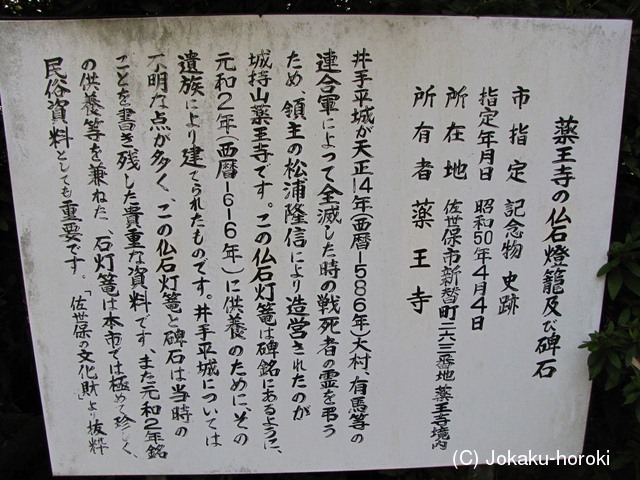 薬王寺の仏石燈籠及び碑石
市指定 記念物 史跡
指定年月日 昭和50年4月4日
所在地 佐世保市新替町二六三番地 薬王寺境内
所有者 薬王寺
井手平城が天正14年(西暦1586年)大村、有馬等の
連合軍によって全滅した時の戦死者の霊を弔う
ため、領主の松浦隆信により造営されたのが
城持山薬王寺です。この仏石灯篭は碑銘にあるように、
元和2年(西暦1616年)に供養のために、その
遺族により建てられたものです。井手平城については
不明な点が多く、この仏石灯篭と碑石は当時の
ことを書き残した貴重な資料です。また元和2年銘
の供養等を兼ねた、石灯篭は本市では極めて珍しく、
民俗資料としても重要です。「佐世保の文化財」より抜粋
(C) Jokaku-horoki